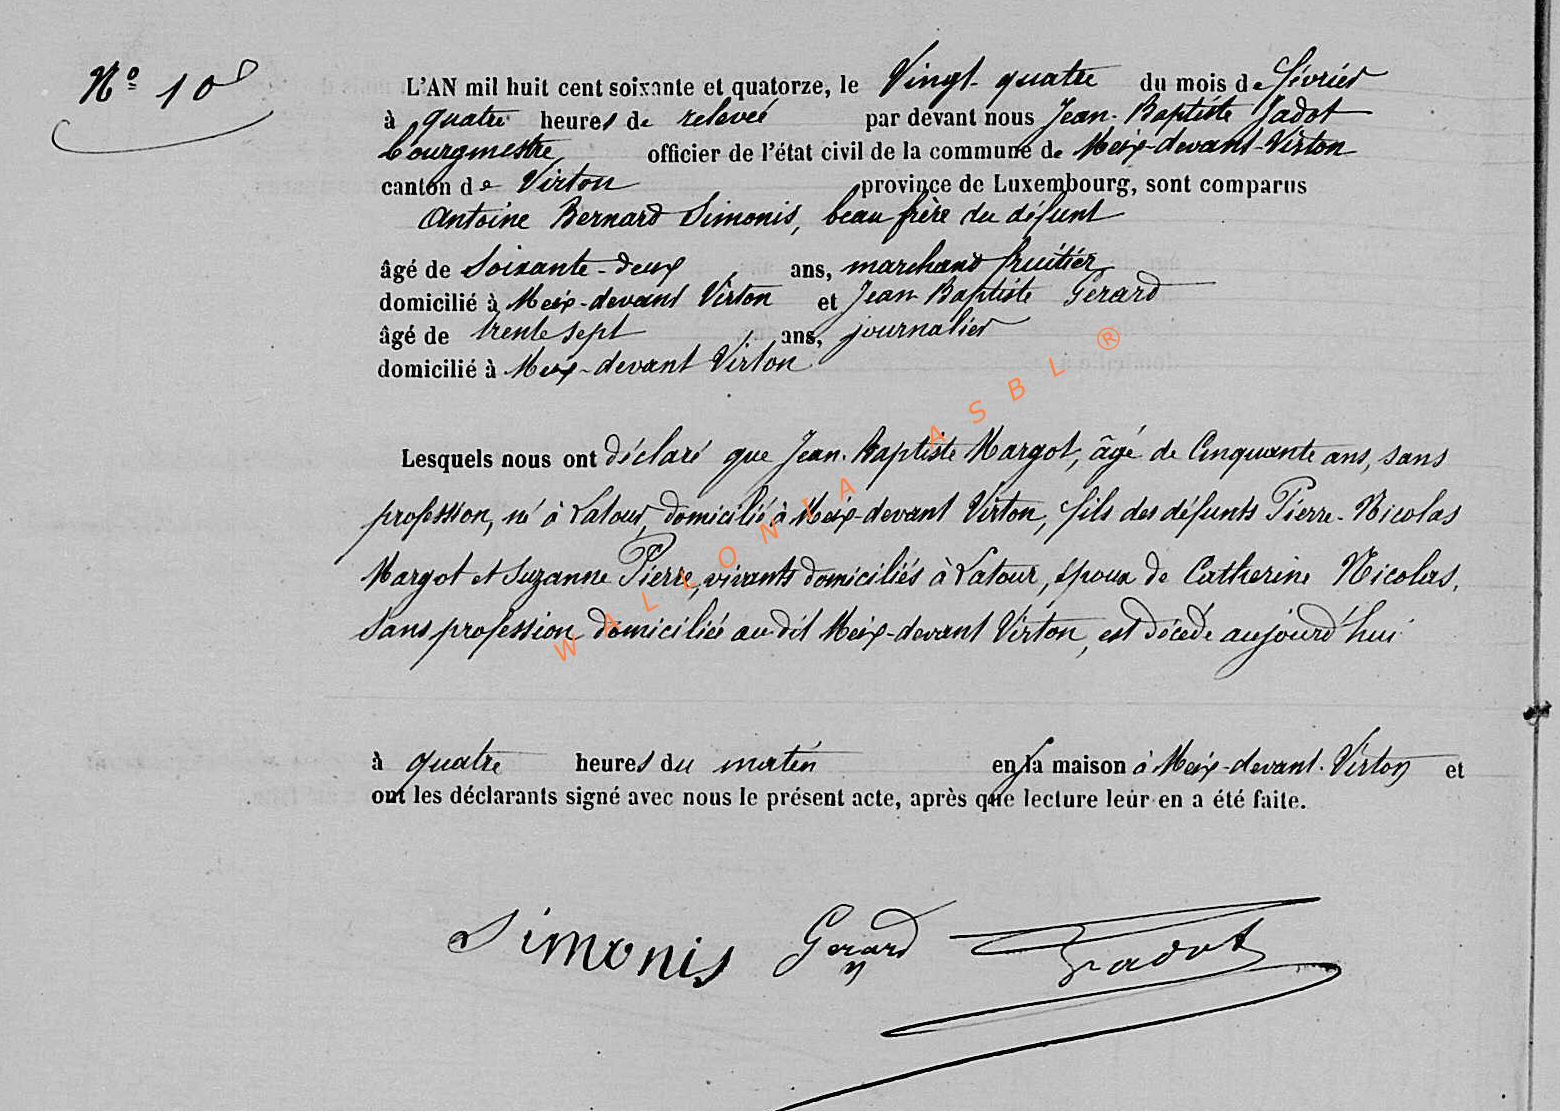 N° 10
L'AN mil huit cent soixante et quatorze, le Vingt-quatre du mois de février
à quatre heures de relevée par devant nous Jean-Baptiste Jadot
bourgmestre officier de l'état civil de la commune de Meix-devant-Virton
canton de Virton province de Luxembourg, sont comparus
Antoine Bernard Simonis, beau frère du défunt
âgé de Soixante-deux ans, marchand fruitier
domicilié à Meix-devant Virton et Jean Baptiste Gérard
âgé de trente sept ans, journalier
domicilié à Meix-devant Virton
Lesquels nous ont déclaré que Jean-Baptiste Margot, âgé de Cinquante ans, sans
profession, né à Latour, domicilié à Meix-devant Virton, fils des défunts Pierre-Nicolas
Margot et Suzanne Pierre, vivants domiciliés à Latour, époux de Catherine Nicolas,
Sans profession domiciliée au dit Meix-devant Virton, est décédé aujourd'hui
à quatre heures du matin en sa maison à Meix-devant-Virton et
ont les déclarants signé avec nous le présent acte, après que lecture leur en a été faite.
Simonis Gerard Jadot
WALLONIA ASBL ®